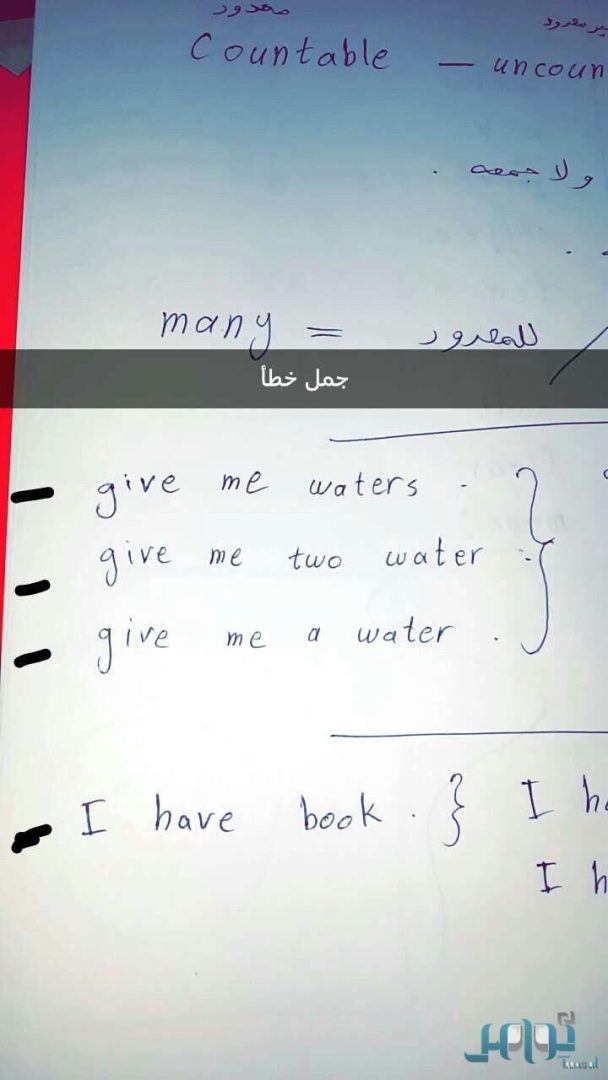 معدود
Countable — uncoun
ولا جمعه .
many = للمعدود /
جمل خطأ
give me waters .
give me two water .
give me a water .
I have book . } I ha
I h